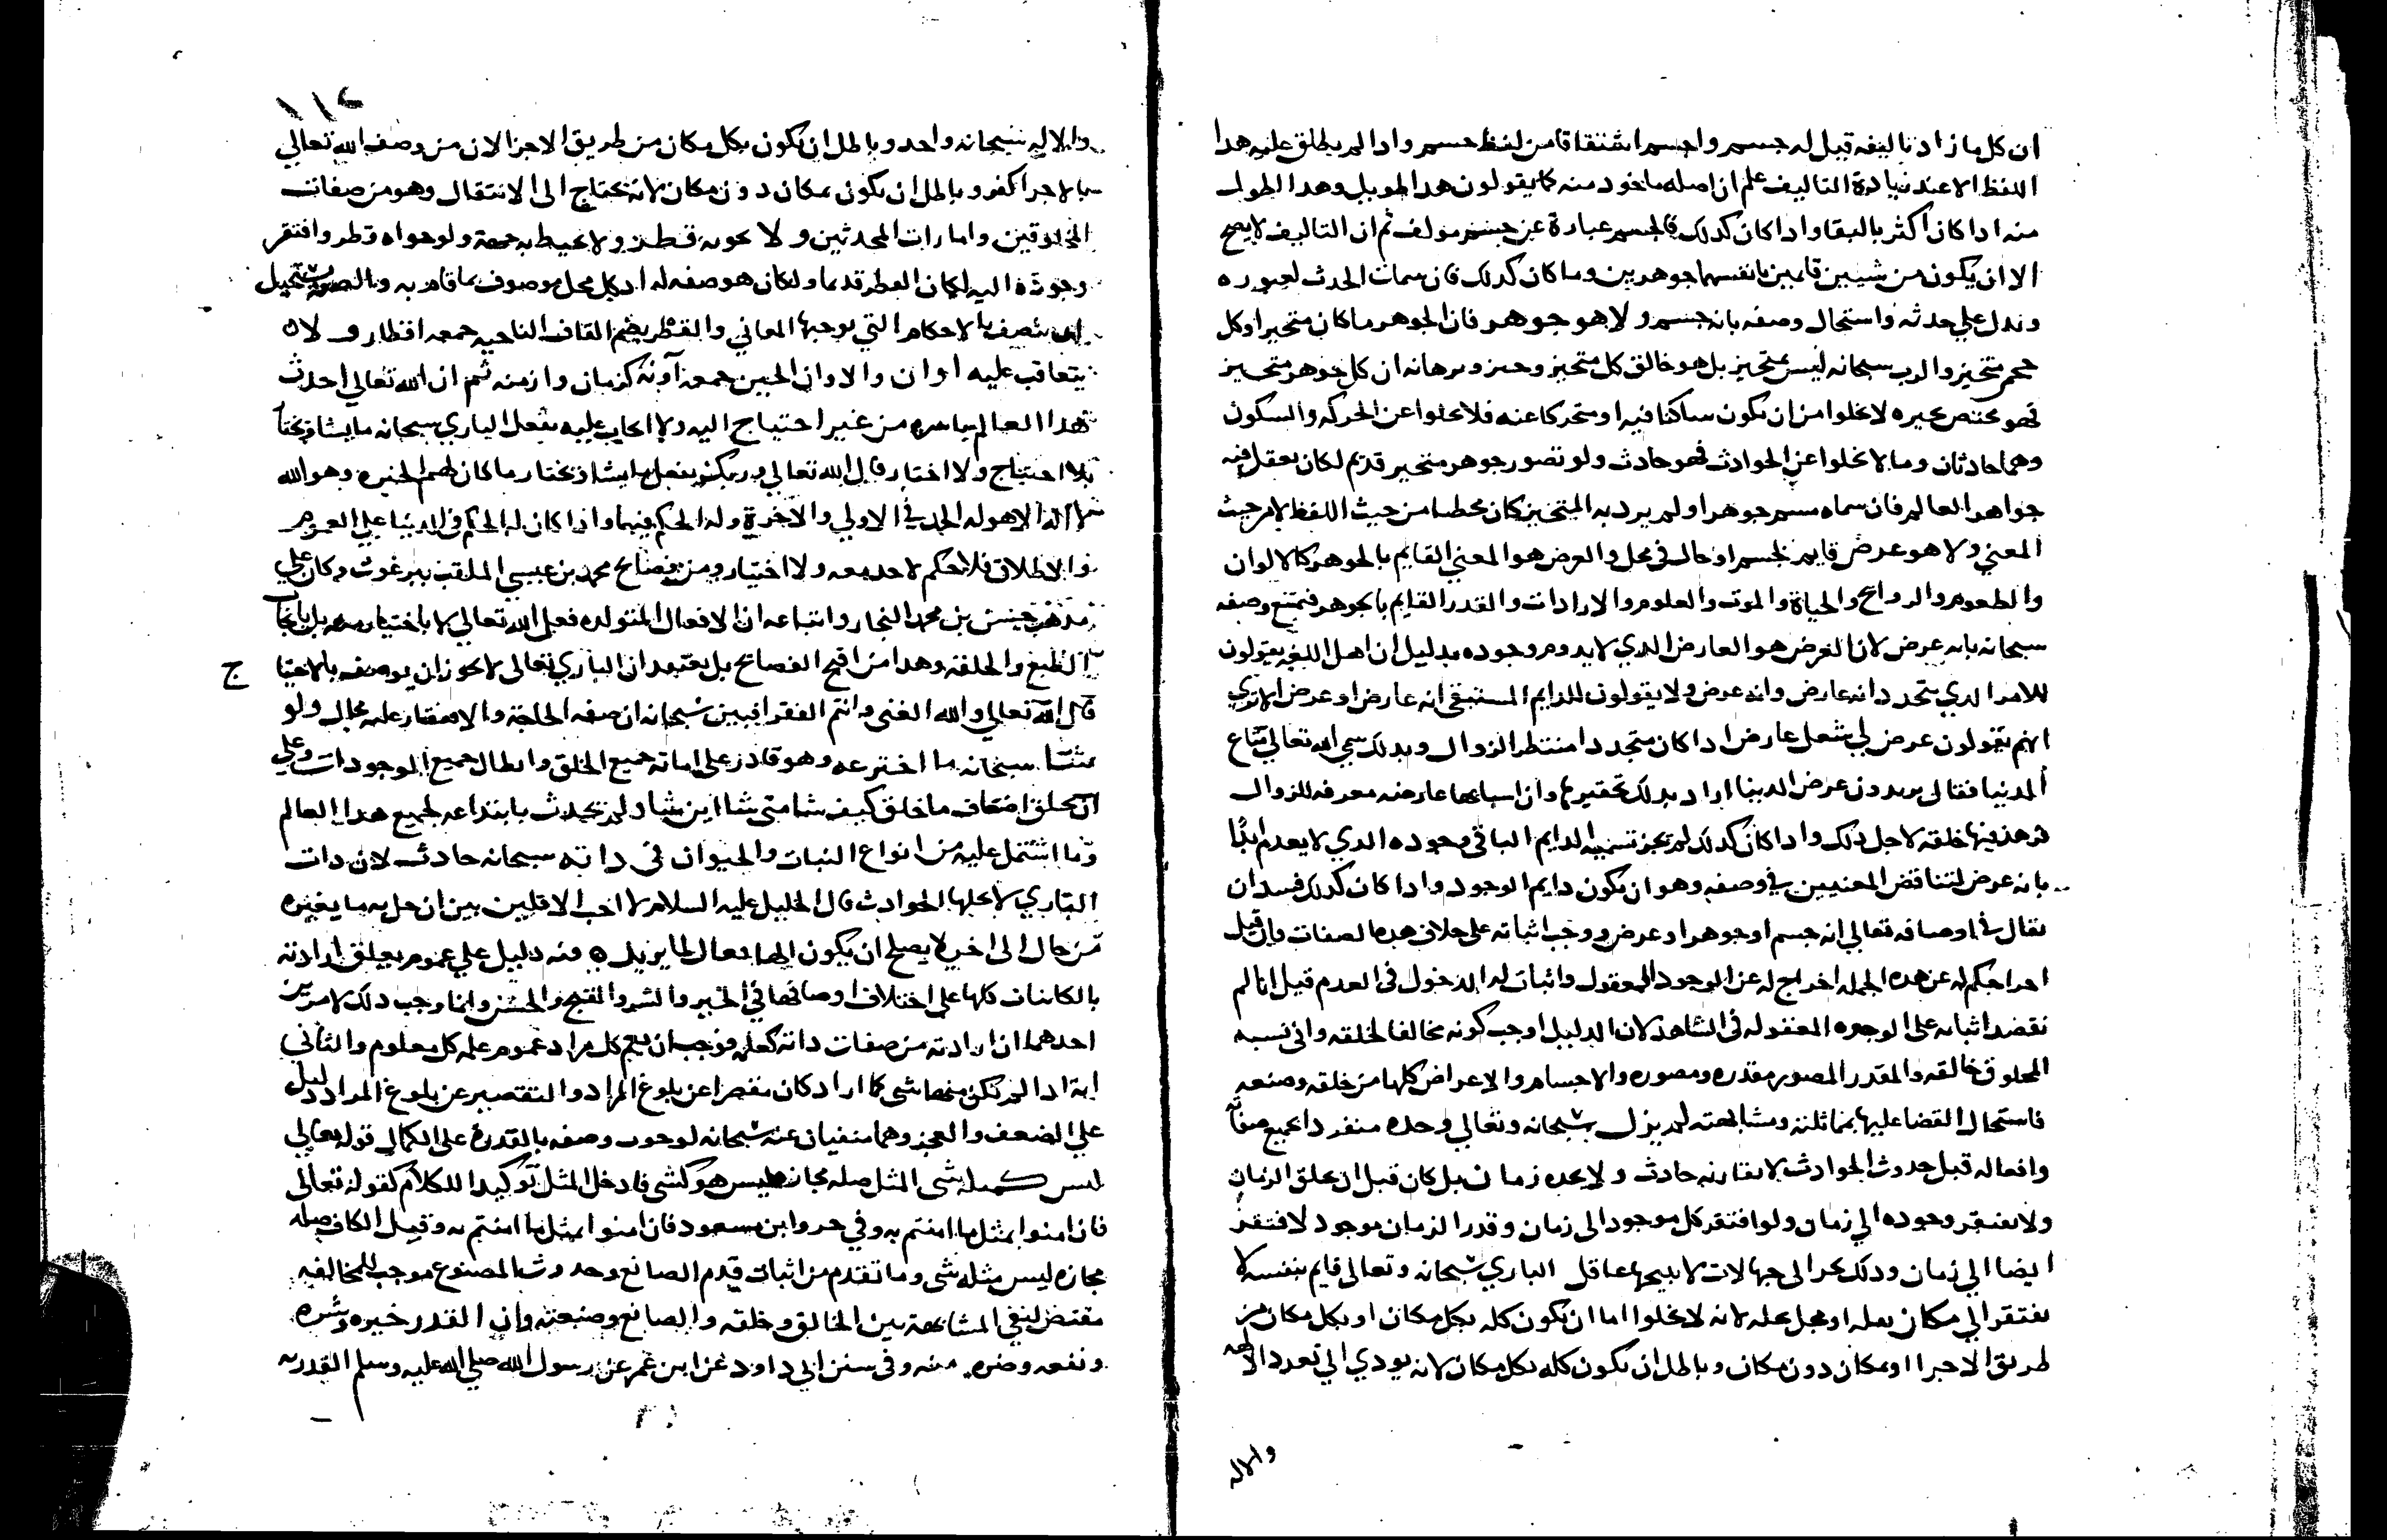 ان كل ما زاد تاليفه قيل له جسم واجسم اشتقاقا من لفظ جسم واذا لم يطلق عليه هذا
اللفظ الا عند زيادة التاليف علم ان اصله ماخوذ منه كما يقولون هذا طويل وهذا اطول
منه اذا كان اكثر بالبقا واذا كان كذلك فالجسم عبارة عن جسم مولف ثم ان التاليف لا يصح
الا ان يكون من شيين قايمين بانفسهما جوهرين وما كان كذلك فان سمات الحدث لعبوره
وتدل علي حدثه واستحال وصفه بانه جسم ولا هو جوهر فان الجوهر ما كان متحيزا وكل
حجم متحيز والرب سبحانه ليس بمتحيز بل هو خالق كل متحيز وحيز وبرهانه ان كل جوهر متحيز
فهو مختص بحيزه لا يخلوا من ان يكون ساكنا فيه او متحركا عنه فلا يخلوا عن الحركه والسكون
وهما حادثان وما لا يخلوا عن الحوادث فهو حادث ولو تصور جوهر متحيز قديم لكان يعقل فيه
جواهر العالم فان سماه مسم جوهرا ولم يرد به المتحيز كان مخطيا من حيث اللفظ لا من حيث
المعني ولا هو عرض قايم بجسم او حال في محل والعرض هو المعني القايم بالجوهر كالالوان
والطعوم والروايح والحياة والموت والعلوم والارادات والقدر القايم بالجوهر فيمتنع وصفه
سبحانه بانه عرض لان العرض هو العارض الذي لا يدوم وجوده بدليل ان اهل اللغه يقولون
للامر الذي يتجدد انه عارض وانه عرض ولا يقولون للدايم المستبقي انه عارض او عرض الا تري
انهم يقولون عرض لي شغل عارض اذا كان متجددا منتظر الزوال وبذلك سمي الله تعالي متاع
الدنيا فقال يريدون عرض الدنيا اراد بذلك تحقيرها وان اسبابها عارضه معرفه للزوال
فزهد فيها خلقه لاجل ذلك واذا كان كذلك لم يجز تسميه الدايم الباقي وجوده الذي لا يعدم ابدا
بانه عرض لتناقض المعنيين في وصفه وهو ان يكون دايم الوجود واذا كان كذلك فسد ان
يقال في اوصافه تعالي انه جسم او جوهر او عرض ووجب اثباته على خلاف هذه الصفات وان قيل
اخراجكم له عن هذه الجمله اخراج له عن الوجود المعقول واثبات له الدخول في العدم قيل انا لم
نقصد اثباته على الوجوه المعقوله في الشاهد لان الدليل اوجب كونه مخالفا لخلقه واني نسبه
المخلوق خالقه والمقدر المصور مقدره ومصوره والاجسام والاعراض كلها من خلقه وصنعه
فاستحال القضا عليها بمماثلته ومشابهته لم يزل سبحانه وتعالي وحده منفردا بجميع صفاته
وافعاله قبل حدوث الحوادث لا يقارنه حادث ولا يحده زمان بل كان قبل ان يخلق الزمان
ولا يفتقر وجوده الي زمان ولو افتقر كل موجود الى زمان وقدر الزمان موجود لافتقر
ايضا الي زمان وذلك يجر الى جهالات لا يبيحها عاقل الباري سبحانه وتعالي قايم بنفسه لا
يفتقر الي مكان يقله او محل يحله لانه لا يخلوا اما ان يكون كله بكل مكان او بكل مكان من
طريق الاجزا او بمكان دون مكان وباطل ان يكون كله بكل مكان لانه يودي الي تعدد الالهه
والاله
١١٢
والاله سبحانه واحد وباطل ان يكون بكل مكان من طريق الاجزا لان من وصف الله تعالي
بالاجزا كفر وباطل ان يكون بمكان دون مكان لانه يحتاج الى الانتقال وهو من صفات
المخلوقين وامارات المحدثين ولا يحويه قطر ولا يحيط به جهة ولو حواه قطر وافتقر
وجوده اليه لكان القطر قديما ولكان هو صفه له اذ كل محل موصوف بما قام به والصفه يستحيل
ان يتصف بالاحكام التي توجبها المعاني والقطر بضم القاف الناحيه جمعه اقطار ولا
يتعاقب عليه اوان والاوان الحين جمعه آونة كزمان وازمنه ثم ان الله تعالي احدث
هذا العالم باسره من غير احتياج اليه ولا ايجاب عليه يفعل الباري سبحانه ما يشا ويختا
بلا احتياج ولا اختيار قال الله تعالي وربك يفعل ما يشا ويختار ما كان لهم الخيره وهو الله
لا اله الا هو له الحمد في الاولي والآخرة وله الحكم فيهما واذا كان له الحكم في الدنيا علي العموم
والاطلاق فلا حكم لاحد معه ولا اختيار ومن فضايح محمد بن عيسي الملقب ببرغوث وكان علي
مذهب حسين بن محمد النجار واتباعه ان الافعال المتولده فعل الله تعالي لا باختيار منه بل بايجاب
الطبع والخلقه وهذا من اقبح الفضايح بل يعتقد ان الباري تعالى لا يجوز ان يوصف بالاحتيا
ج
قال الله تعالي والله الغني وانتم الفقرا فبين سبحانه ان صفه الحاجة والافتقار عليه محال ولو
شا سبحانه ما اخترعه وهو قادر على اماته جميع الخلق وابطال جميع الموجودات وعلي
ان يخلق اضعاف ما خلق كيف شا متى شا اين شا ولم يحدث بابتداعه لجميع هذا العالم
وما اشتمل عليه من انواع النبات والحيوان في ذاته سبحانه حادث لان ذات
الباري لا يحلها الحوادث قال الخليل عليه السلام لا احب الافلين بين ان حل به ما يغيره
من حال الى اخري لا يصلح ان يكون الها فعال لما يريد فيه دليل علي عموم تعلق ارادته
بالكاينات كلها على اختلاف اوصافها في الخير والشر والقبح والحسن وانما وجب ذلك لامرين
احدهما ان ارادته من صفات ذاته كعلمه فوجب ان تعم كل مراد عموم علمه كل معلوم والثاني
انه اذا لم تكن منها شي كما اراد كان مقصرا عن بلوغ المراد والتقصير عن بلوغ المراد دليل
علي الضعف والعجز وهما منفيان عنه سبحانه لوجوب وصفه بالقدرة على الكمال قوله تعالي
ليس كمثله شي المثل صله مجازه ليس هو كشي فادخل المثل توكيدا للكلام كقوله تعالى
فان امنوا بمثل ما امنتم به وفي حروا ابن مسعود فان امنوا بمثل ما امنتم به وقيل الكاف صله
مجازه ليس مثله شي وما تقدم من اثبات قدم الصانع وحدوث المصنوع موجب للمخالفه
مقتض لنفي المشابهة بين الخالق وخلقه والصانع وصنعته وان القدر خيره وشره
ونفعه وضره منه وفي سنن ابي داود عن ابن عمر عن رسول الله صلي الله عليه وسلم القدريه